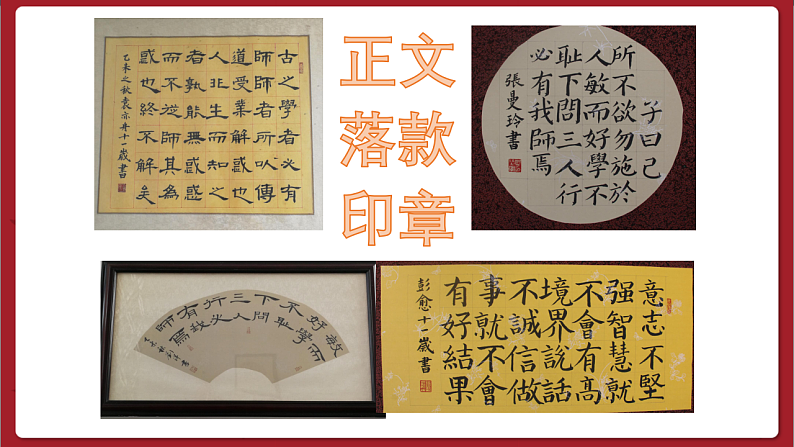 古之學者必有
師師者所以傳
道受業解惑也
人非生而知之
者孰能無惑惑
而不從師其為
惑也終不解矣
乙未之秋袁亦冉十一歲書
正文
落款
印章
子曰己
所不欲勿施於
人敏而好學不
恥下問三人行
必有我師焉
張曼玲書
敏而
好學
不恥
下問
三人
行必
有我
師焉
意志不堅
強智慧就
不會有高
境界說話
不誠信做
事就不會
有好結果
彭愈十一歲書